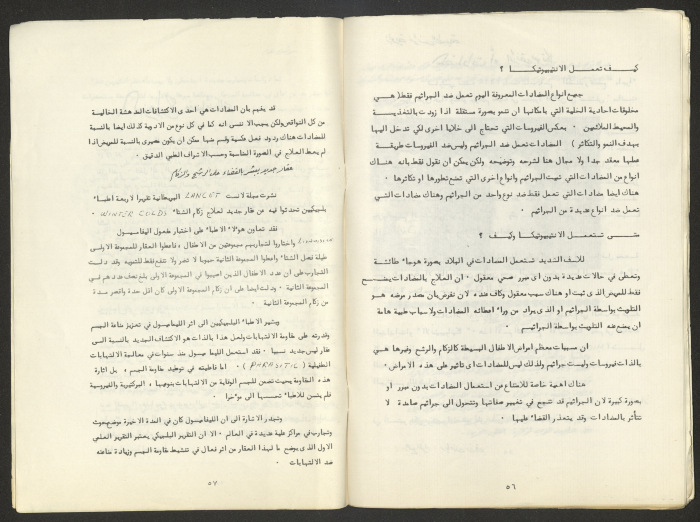 كيف تعمل الانتيبيوتيكا ؟
جميع انواع المضادات المعروفة اليوم تعمل ضد الجراثيم فقط(هي
مخلوقات احادية الخلية التي بامكانها ان تنمو بصورة مستقلة اذا زودت بالتغذية
والمحيط الملائمين . بعكس الفيروسات التي تحتاج الى خلايا اخرى لكي تدخل اليها
بهدف النمو والتكاثر ) المضادات تعمل ضد الجراثيم وليس ضد الفيروسات طريقة
عملها معقد جدا ولا مجال هنا لشرحه وتوضيحه ولكن يمكن ان نقول فقط بانه هناك
انواع من المضادات التي تميت الجراثيم وانواع اخرى التي تمنع تطورها او تكاثرها .
هناك ايضا مضادات التي تعمل فقط ضد نوع واحد من الجراثيم وهناك مضادات التي
تعمل ضد انواع عديدة من الجراثيم .
متى تستعمل الانتيبيوتيكا وكيف ؟
للاسف الشديد تستعمل المضادات في البلاد بصورة هوجاء طائشة
وتعطى في حالات عديدة بدون اى مبرر صحي معقول . ان العلاج بالمضادات
فقط للمريض الذى
التهيت بواسطة الجراثيم او الذى يراد من وراء اعطائه المضادات ولاسباب طبية هامة
ان يضع نفسه التهيت بواسطة الجراثيم.
ان مسببات معظم امراض الاطفال البسيطة كالزكام والرشح وغيرها هي
بالذات فيروسات وليست جراثيم ولذلك ليس للمضادات اى تأثير على هذه الامراض.
هناك اهمية خاصة للامتناع عن استعمال المضادات بدون مبرر او
بصورة كبيرة لان الجراثيم قد تنجح في تغيير صفاتها وتتحول الى جراثيم صامدة لا
تتأثر بالمضادات وقد يتعذر القضاء عليها .
٥٦
قد يفهم بان المضادات هي احدى الاكتشافات المدهشة الخالية
من كل النواقص ولكن يجب الا ننسى انه كما في كل نوع من الادوية كذلك ايضا بالنسبة
للمضادات هناك ردود فعل عكسية وقسم منها ممكن ان يكون مصيرى بالنسبة للمريض اذا
لم يعط العلاج في الصورة المناسبة وحسب الاشراف الطبي الدقيق .
عقار جديد يبشر بالقضاء على الرشح والزكام
نشرت مجلة لانست LANCET البريطانية تقريرا لاربعة اطباء
بلجيكيين تحدثوا فيه عن عقار جديد لعلاج زكام الشتاء WINTER COLDS .
فقد تعاون هؤلاء الاطباء على اختبار مفعول الليفاميسول
واختاروا لتجاربهم مجموعتين من الاطفال ، فاعطوا العقار للمجموعة الاولى
طيلة فصل الشتاء واعطوا المجموعة الثانية حبوبا لا تضر ولا تنفع فقط للتمويه وقد دلت
التجارب على ان عدد الاطفال الذين اصيبوا في المجموعة الاولى بلغ نصف عددهم في
المجموعة الثانية . ودلت ايضا على ان زكام المجموعة الاولى كان اقل حدة واقصر مدة
من زكام المجموعة الثانية .
ويشير الاطباء البلجيكيين الى اثر الليفاميسول في تعزيز مناعة الجسم
وقدرته على مقاومة الالتهابات ولعل هذا بالذات هو الاكتشاف الجديد بالنسبة الى
عقار ليس جديد نسبيا . فقد استعمل الليفاميسول منذ سنوات في معالجة الالتهابات
الطفيلية ( PARASITIC ) . اما فاعليته في توطيد مقاومة الجسم ، بل اثارة
هذه المقاومة بحيث تضمن للجسم الوقاية من الالتهابات بنوعيها ، البكتيرية والفيروسية
فلم يتسن للاطباء تلمسها الى مؤخرا .
وتجدر الاشارة الى ان الليفاميسول كان في المدة الاخيرة موضع بحوث
وتجارب في مراكز طبية عديدة في العالم . الا ان التقرير البلجيكي يعتبر التقرير العلمي
الاول الذى يوضح ما لهذا العقار من اثر فعال في تنشيط مقاومة الجسم وزيادة مناعته
ضد الالتهابات .
٥٧